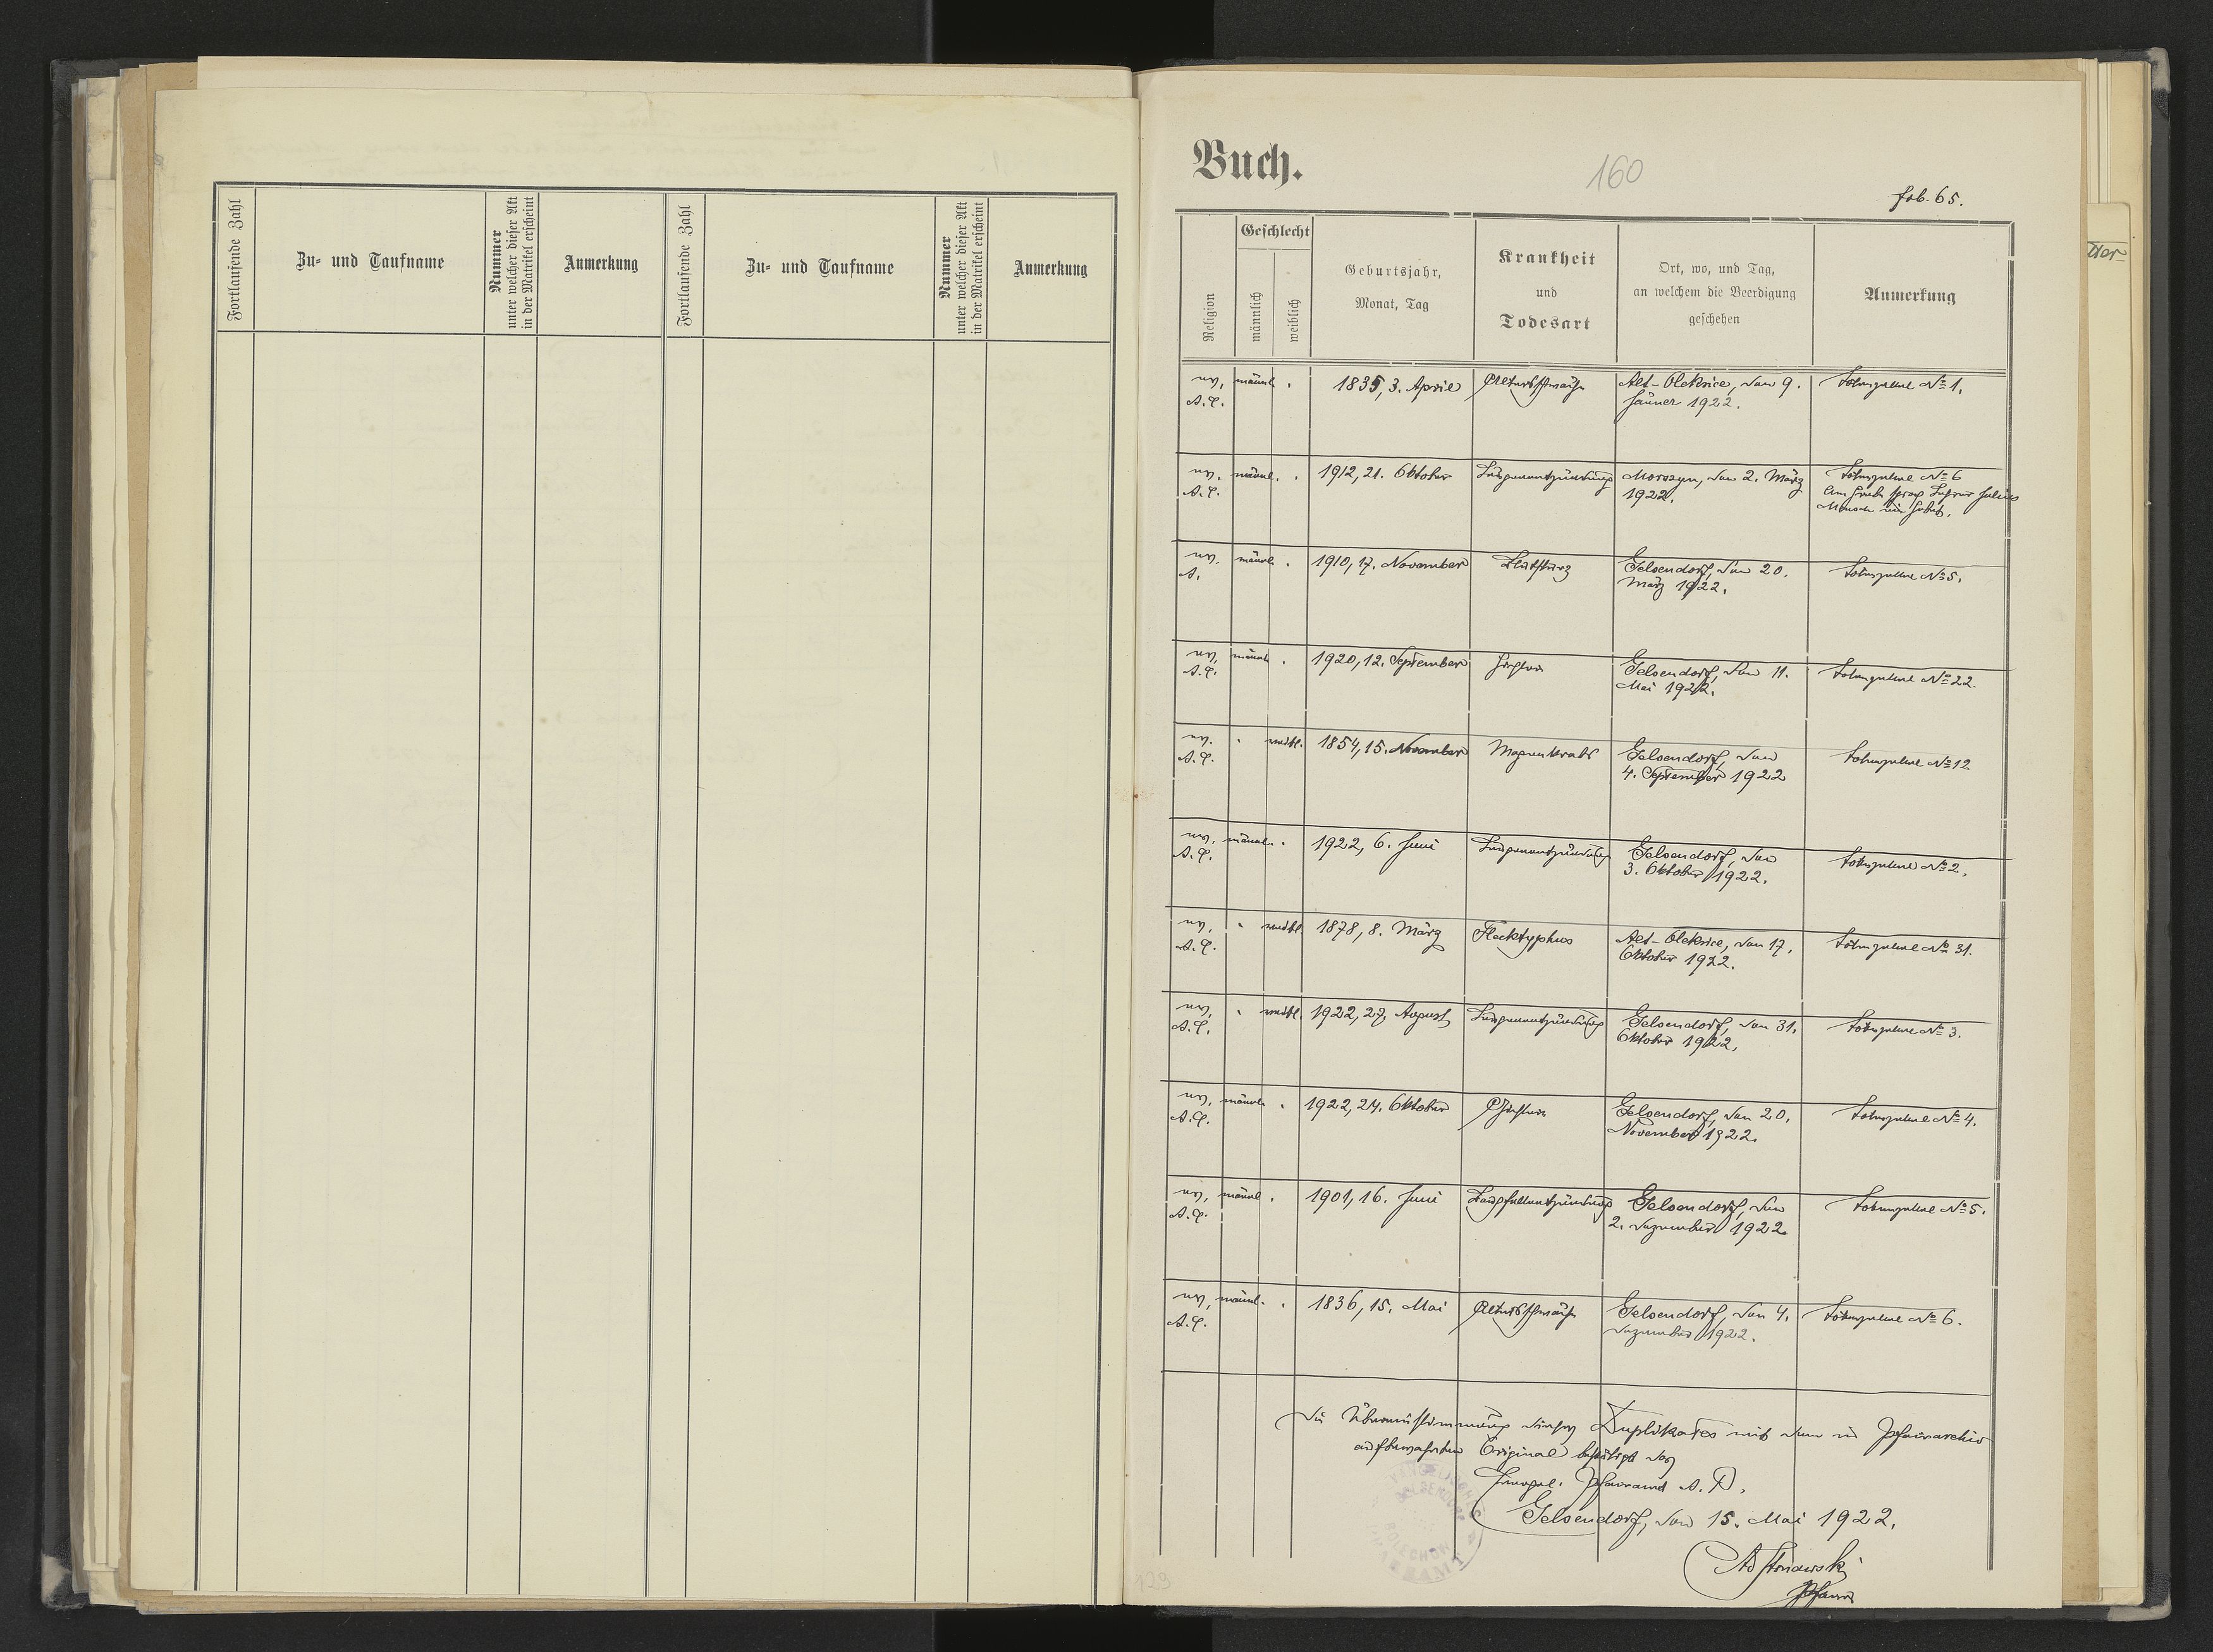 Fortlaufende Zahl
Zu- und Taufname
Nummer
unter welcher dieser Akt
in der Matrikel erscheint
Anmerkung
Fortlaufende Zahl
Zu- und Taufname
Nummer
unter welcher dieser Akt
in der Matrikel erscheint
Anmerkung
Buch.
160
fol. 65.
Religion
Geschlecht
männlich
weiblich
Geburtsjahr,
Monat, Tag
Krankheit
und
Todesart
Ort, wo, und Tag,
an welchem die Beerdigung
geschehen
Anmerkung
ev. männl. 1835, 3. April Altersschwäche Alt-Oleksice, den 9. № 1.
A.C. Jänner 1922.
ev. männl. 1912, 21. Oktober Lungenentzündung Morszyn, den 2. März № 6
A.C. 1922. Am Grabe sprach Lehrer Julius
Mensch ein Gebet.
ev. männl. 1910, 17. November Blutsturz Gelsendorf, den 20. № 5.
A. März 1922.
ev. männl. 1920, 12. September Gelsendorf, den 11. № 22.
A.C. Mai 1922.
ev. weibl. 1854, 15. November Magenkrebs Gelsendorf, den № 12
A.C. 4. September 1922
ev. männl. 1922, 6. Juni Lungenentzündung Gelsendorf, den № 2.
A.C. 3. Oktober 1922.
ev. weibl. 1878, 8. März Flecktyphus Alt-Oleksice, den 17. № 31.
A.C. Oktober 1922.
ev. weibl. 1922, 27. August Lungenentzündung Gelsendorf, den 31. № 3.
A.C. Oktober 1922.
ev. männl. 1922, 24. Oktober Gelsendorf, den 20. № 4.
A.C. November 1922.
ev. männl. 1901, 16. Juni Bauchfellentzündung Gelsendorf, den № 5.
A.C. 2. Dezember 1922.
ev. männl. 1836, 15. Mai Altersschwäche Gelsendorf, den 4. № 6.
A.C. Dezember 1922.
Die Übereinstimmung dieses Duplikates mit dem im Pfarrarchiv
aufbewahrten Original bestätigt das
Evangel. Pfarramt A. B.
Gelsendorf, den 15. Mai 1922.
Pfarrer
129